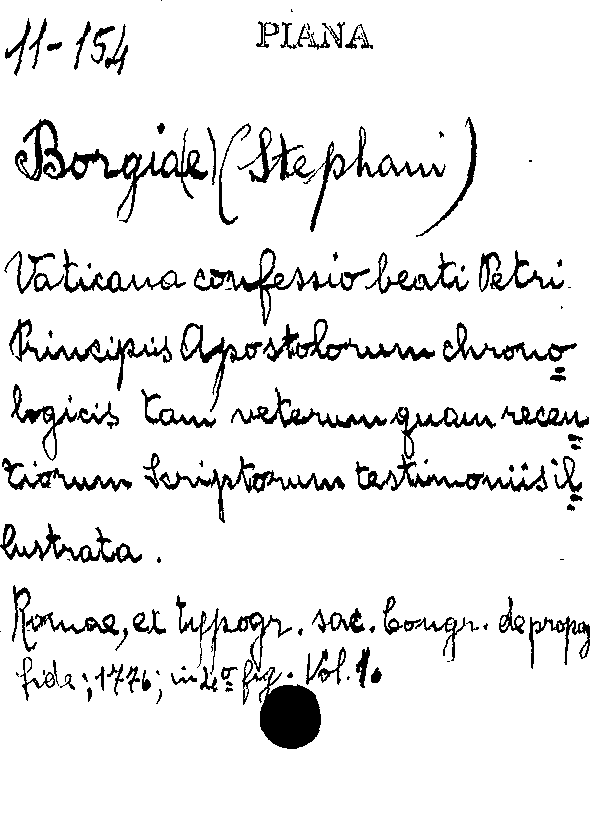 11-154
PIANA
Borgia(e) (Stephani)
Vaticana confessio beati Petri
Principis Apostolorum chrono=
logicis tam veterum quam recen=
tiorum Scriptorum testimoniis il=
lustrata.
Romae, ex typogr. sac. Congr. de propag
fide; 1776; in 4º fig. Vol. 1.